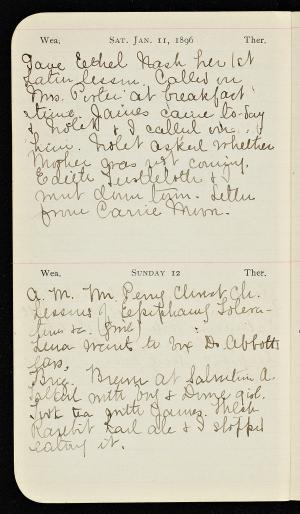 Wea. SAT. JAN. 11, 1896 Ther.
Gave Ethel Nash her 1st
Latin lesson. Called on
Mrs. Porter at breakfast
time. James came to-day
& Violet & I called on
him. Violet asked whether
Mother was not coming.
Edith &
went down town. Letter
from Carrie Moon.
Wea. SUNDAY 12 Ther.
A. M. Mr. Perry Christ Ch.
Lessons of Epiphany Tolera-
tion &c.
Lena went to Dr. Abbott
Brig. Brewer at Salvation A.
talked with boy & girl.
Took tea with James. Welsh
Rarebit & I stopped
eating it.